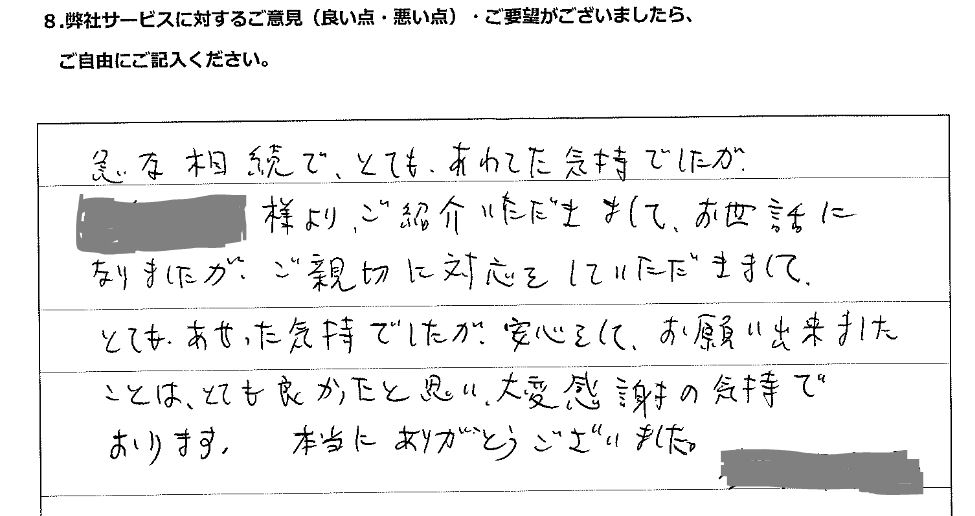 8.弊社サービスに対するご意見（良い点・悪い点）・ご要望がございましたら、
ご自由にご記入ください。
急な相続で、とても、あわてた気持でしたが、
様より、ご紹介いただきまして、お世話に
なりましたが、ご親切に対応をしていただきまして、
とても、あせった気持でしたが、安心をして、お願い出来ました
ことは、とても良かったと思い、大変感謝の気持で
おります。 本当にありがとうございました。